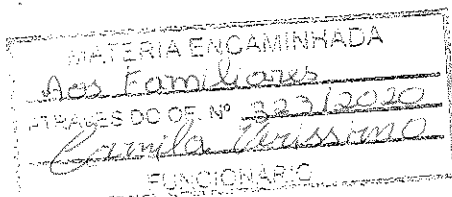 MATÉRIA ENCAMINHADA
Aos Familiares
ATRAVÉS DO OF. Nº 323/2020
Camila Verissimo
FUNCIONÁRIO